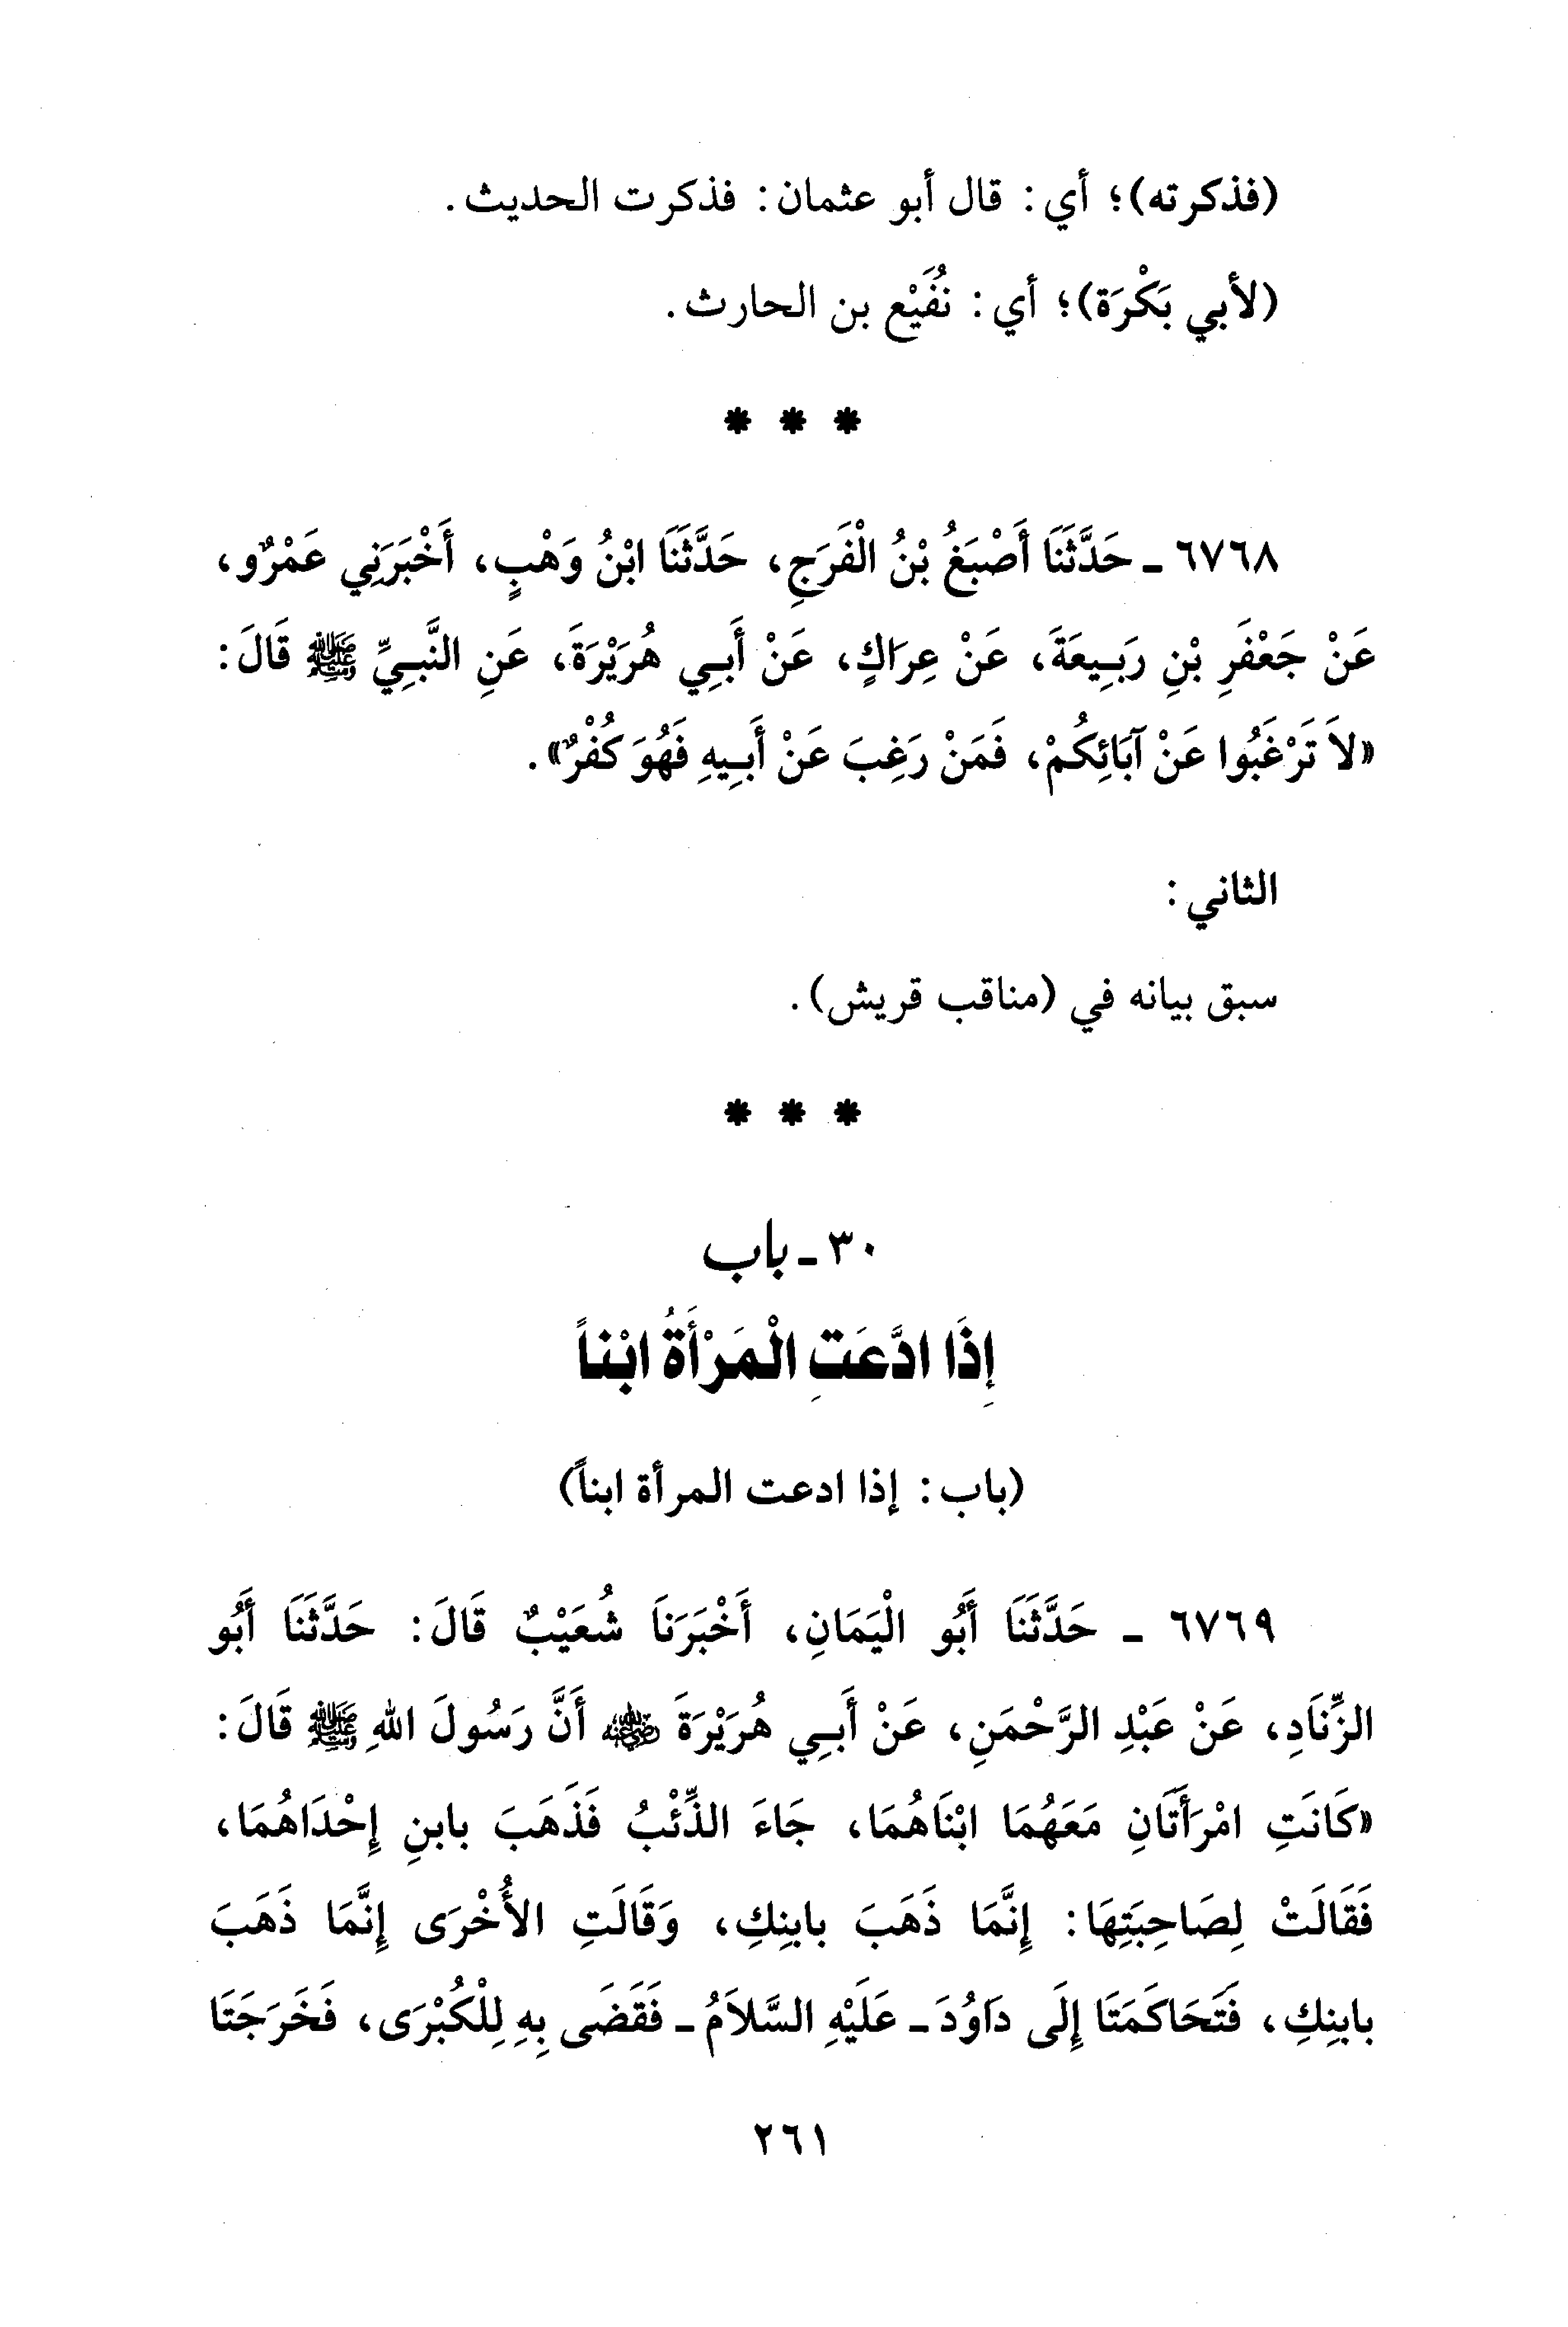 (فذكرته)؛ أي: قال أبو عثمان: فذكرت الحديث.
(لأبي بَكْرَة)؛ أي: نُفَيْع بن الحارث.
* * *
٦٧٦٨ ـ حَدَّثَنَا أَصْبَغُ بْنُ الْفَرَجِ، حَدَّثَنَا ابْنُ وَهْبٍ، أَخْبَرَنِي عَمْرٌو،
عَنْ جَعْفَرِ بْنِ رَبِيعَةَ، عَنْ عِرَاكٍ، عَنْ أَبِي هُرَيْرَةَ، عَنِ النَّبِيِّ ﷺ قَالَ:
«لاَ تَرْغَبُوا عَنْ آبَائِكُمْ، فَمَنْ رَغِبَ عَنْ أَبِيهِ فَهُوَ كُفْرٌ».
الثاني:
سبق بيانه في (مناقب قريش).
* * *
٣٠ ـ باب
إِذَا ادَّعَتِ الْمَرْأَةُ ابْناً
(باب: إذا ادعت المرأة ابناً)
٦٧٦٩ ـ حَدَّثَنَا أَبُو الْيَمَانِ، أَخْبَرَنَا شُعَيْبٌ قَالَ: حَدَّثَنَا أَبُو
الزِّنَادِ، عَنْ عَبْدِ الرَّحْمَنِ، عَنْ أَبِي هُرَيْرَةَ رضي الله عنه أَنَّ رَسُولَ اللهِ ﷺ قَالَ:
«كَانَتِ امْرَأَتَانِ مَعَهُمَا ابْنَاهُمَا، جَاءَ الذِّئْبُ فَذَهَبَ بابنِ إِحْدَاهُمَا،
فَقَالَتْ لِصَاحِبَتِهَا: إِنَّمَا ذَهَبَ بابنِكِ، وَقَالَتِ الأُخْرَى إِنَّمَا ذَهَبَ
بابنِكِ، فَتَحَاكَمَتَا إِلَى دَاوُدَ ـ عَلَيْهِ السَّلاَمُ ـ فَقَضَى بِهِ لِلْكُبْرَى، فَخَرَجَتَا
٢٦١